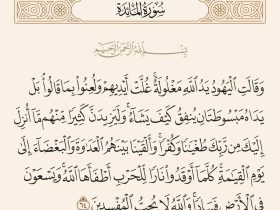 سُورَةُ المَائِدَةِ
بِسْمِ ٱللَّهِ ٱلرَّحْمَٰنِ ٱلرَّحِيمِ
وَقَالَتِ ٱلْيَهُودُ يَدُ ٱللَّهِ مَغْلُولَةٌ ۚ غُلَّتْ أَيْدِيهِمْ وَلُعِنُوا۟ بِمَا قَالُوا۟ ۘ بَلْ
يَدَاهُ مَبْسُوطَتَانِ يُنفِقُ كَيْفَ يَشَآءُ ۚ وَلَيَزِيدَنَّ كَثِيرًا مِّنْهُم مَّآ أُنزِلَ
إِلَيْكَ مِن رَّبِّكَ طُغْيَٰنًا وَكُفْرًا ۚ وَأَلْقَيْنَا بَيْنَهُمُ ٱلْعَدَٰوَةَ وَٱلْبَغْضَآءَ إِلَىٰ
يَوْمِ ٱلْقِيَٰمَةِ ۚ كُلَّمَآ أَوْقَدُوا۟ نَارًا لِّلْحَرْبِ أَطْفَأَهَا ٱللَّهُ ۚ وَيَسْعَوْنَ
فِى ٱلْأَرْضِ فَسَادًا ۚ وَٱللَّهُ لَا يُحِبُّ ٱلْمُفْسِدِينَ ٦٤